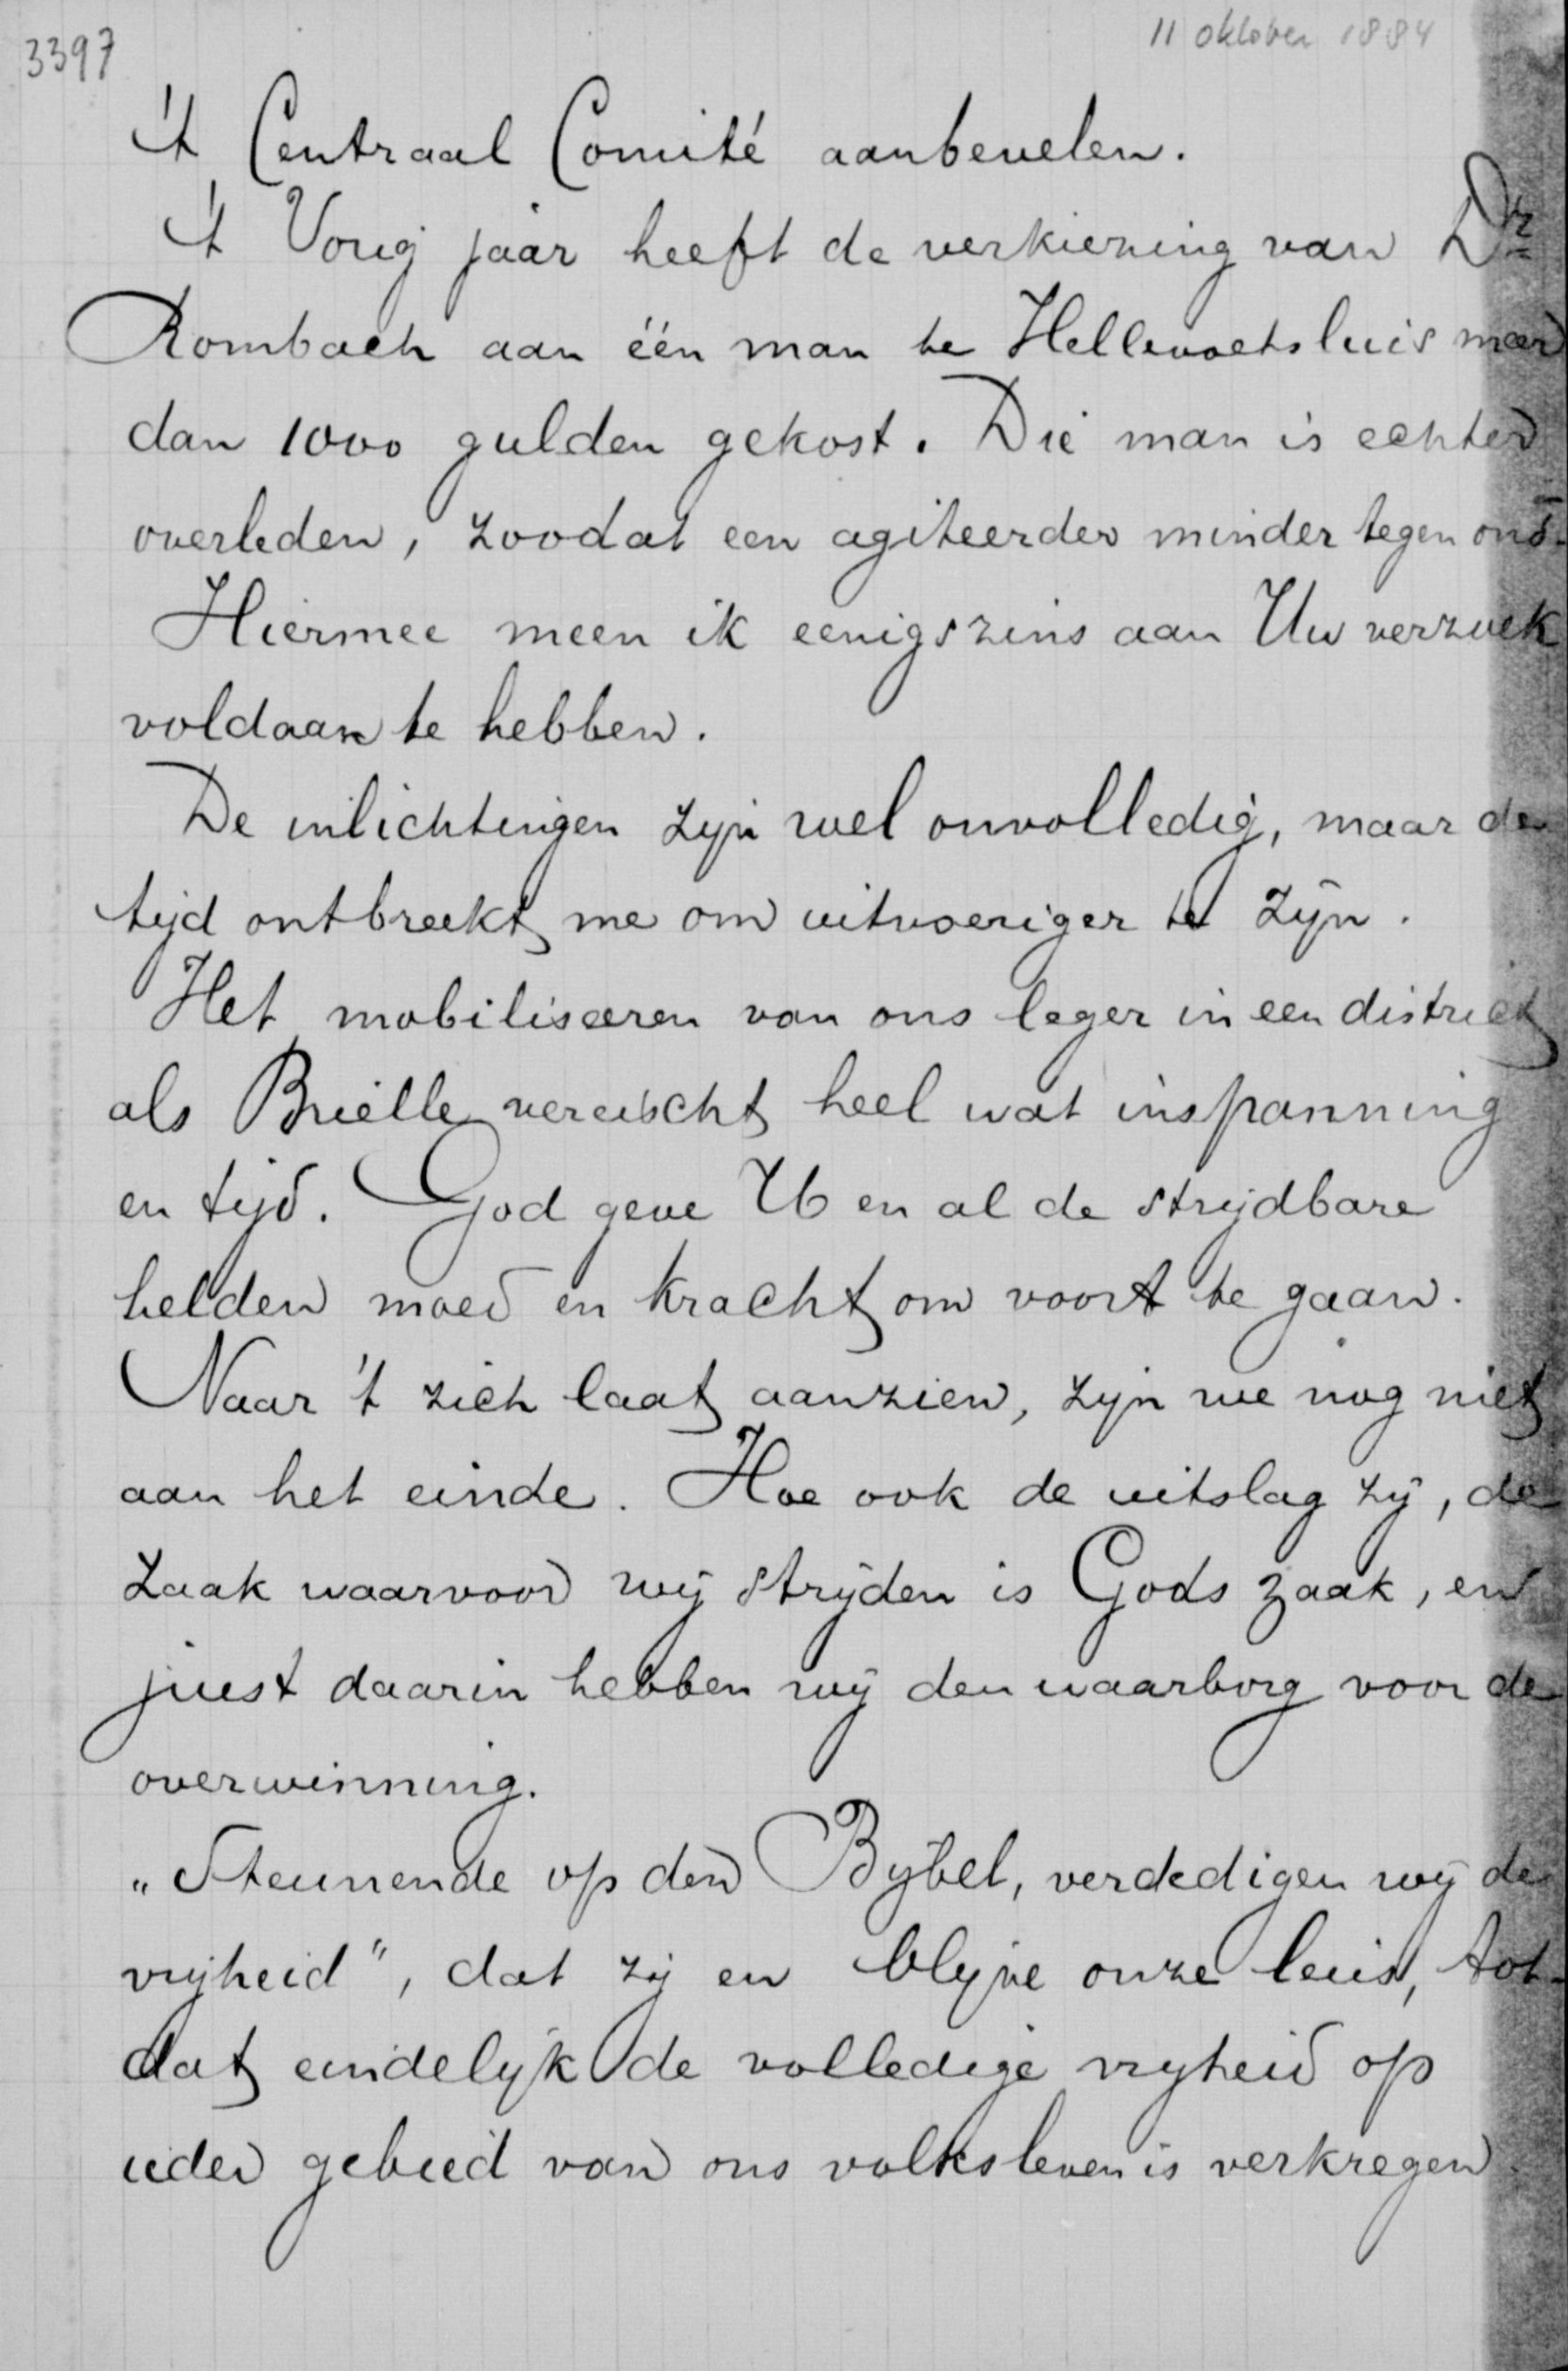 3397
11 oktober 1884
't Centraal Comité aanbevelen.
't Vorig jaar heeft de verkiezing van Dr
Rombach aan één man te Hellevoetsluis meer
dan 1000 gulden gekost. Die man is echter
overleden, zoodat een agiteerder minder tegen ons.
Hiermee meen ik eenigszins aan Uw verzoek
voldaan te hebben.
De inlichtingen zijn wel onvolledig, maar de
tijd ontbreekt me om uitvoeriger te zijn.
Het mobiliseeren van ons leger in een district
als Brielle vereischt heel wat inspanning
en tijd. God geve U en al de strijdbare
helden moed en kracht om voort te gaan.
Naar 't zich laat aanzien, zijn we nog niet
aan het einde. Hoe ook de uitslag zij, de
zaak waarvoor wij strijden is Gods zaak, en
juist daarin hebben wij den waarborg voor de
overwinning.
„Steunende op den Bijbel, verdedigen wij de
vrijheid", dat zij en blijve onze leus, tot-
dat eindelijk de volledige vrijheid op
ieder gebied van ons volksleven is verkregen.